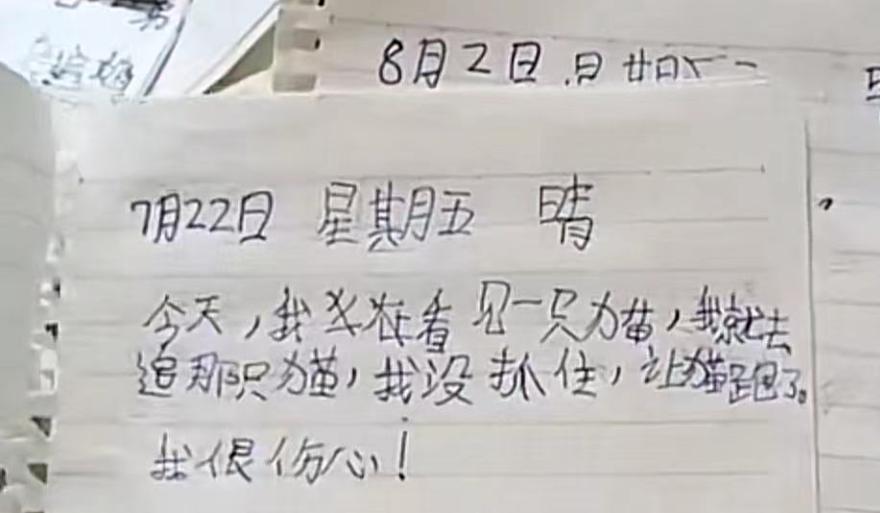 8月2日
7月22日 星期五 晴
今天，我看见一只猫，我就去
追那只猫，我没抓住，让猫跑了。
我很伤心！